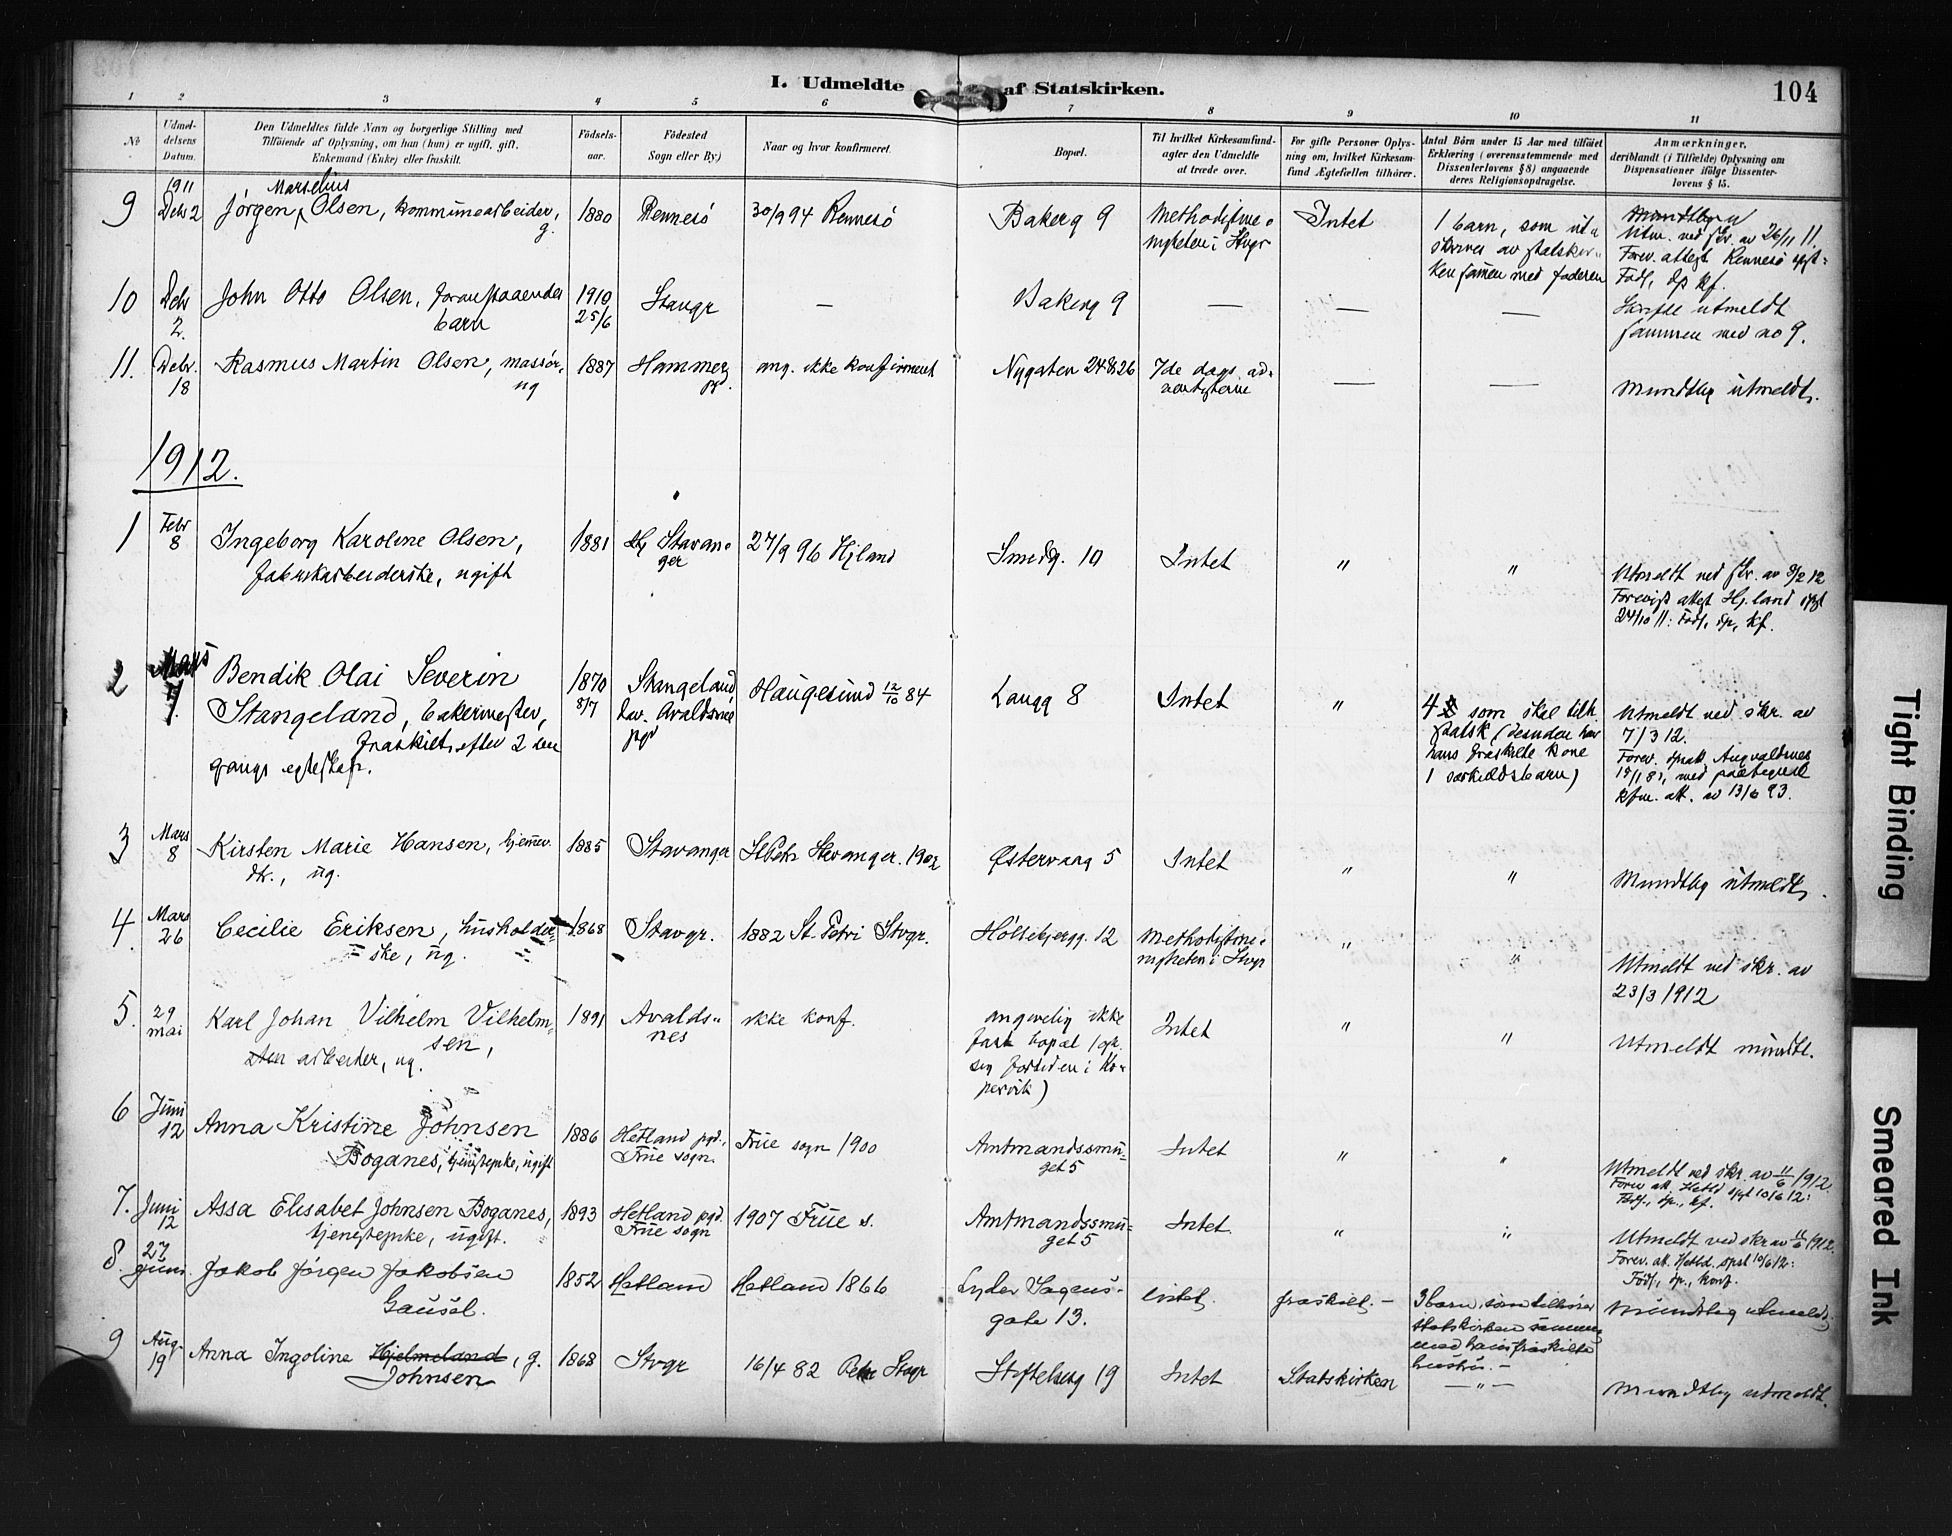 I. Udmeldte af Statskirken.
104
1 2 3 4 5 6 7 8 9 10 11
No
Udmel-
delsens
Datum.
Den Udmeldtes fulde Navn og borgerlige Stilling med
Tilføiende af Oplysning, om han (hun) er ugift, gift,
Enkemand (Enke) eller fraskilt.
Fødsels-
aar.
Fødested
Sogn eller By)
Naar og hvor konfirmeret.
Bopæl.
Til hvilket Kirkesamfund-
agter den Udmeldte
at træde over.
For gifte Personer Oplys-
ning om, hvilket Kirkesam-
fund Ægtefællen tilhører.
Antal Børn under 15 Aar med tilføiet
Erklæring (overensstemmende med
Dissenterlovens § 8) angaaende
deres Religionsopdragelse.
Anmærkninger,
deriblandt (i Tilfælde) Oplysning om
Dispensationer ifølge Dissenter-
lovens § 15.
9
1911
Debr 2
Marselius
Jørgen, Olsen, kommunearbeider,
g.
1880
Rennesö
30/9 94 Rennesö
Bakerg 9
Methodistme=
nigheten i Stvgr
Intet
1 barn, som ut=
skrives av statskir=
ken sammen med faderen
Utm. ved skr. av 26/11 11.
Forev. attest Rennesö
Födt, dp kf.
10
Debr
2.
John Otto Olsen, foranstaaendes
barn
1910
25/6
Stavgr
—
Bakerg 9
—
—
—
utmeldt
sammen med no 9.
11.
Debr.
18
Rasmus Martin Olsen, massör,
ug
1887
Hammer
ang. ikke konfirmert
Nygaten 24 & 26
7de dags ad=
ventisterne
—
—
Mundtlig utmeldt.
1912.
1
Febr
8
Ingeborg Karoline Olsen,
fabrikarbeiderske, ugift
1881
Stavan=
ger
27/9 96 Hjland
Smedg. 10
Intet
"
"
Utmeldt ved skr. av 8/2 12
Forevist attest Hj.land
24/10 11: Födt, dp, kf.
2
Mars
7.
Bendik Olai Severin
Stangeland, bakermester,
fraskilt, efter 2 den
gangs egteskap.
1870
8/7
Stangeland,
Avaldsnes
Haugesund 12/10 84
Langg 8
Intet
"
4 som skal tilh.
statsk (desuden har
hans fraskilte kone
1 særkuldsbarn)
Utmeldt ved skr. av
7/3 12.
Forev. Augvaldnes
med paategnet
kfm. att. av 13/6 93.
3
Mars
8
Kirsten Marie Hansen, hjemmev.
dtr., ug.
1885
Stavanger
St Petri Stavanger. 1902
Østervaag 5
Intet
"
"
Mundtlig utmeldt.
4.
Mars
26
Cecilie Eriksen, husholder=
=ske, ug.
1868
Stavgr.
1882 St. Petri Stvgr.
Hölsebjergg. 12
Methodistme=
nigheten i Stvgr
"
"
Utmeldt ved skr. av
23/3 1912
5.
29
mai
Karl Johan Vilhelm Vilhelm=
sen,
arbeider, ug.
1891
Avalds=
nes
ikke konf.
angivelig ikke
fast bopæl (opk.
sig for tiden i Ko=
pervik)
Intet
"
"
Utmeldt mundtl.
6
Juni
12
Anna Kristine Johnsen
Boganes, tjenestepike, ugift
1886
Hetland pgd.,
Frue sogn.
Frue sogn 1900
Amtmandssmu=
get 5
Intet
"
"
Utmeldt ved skr. av 11/6 1912.
Forev att. Hetld 10/6 12:
Födt, dp., kf.
7.
Juni
12
Assa Elisabet Johnsen Boganes,
tjenestepike, ugift.
1893
Hetland pgd.
Frue sogn
1907 Frue s.
Amtmandssmu=
get 5
Intet.
"
"
Utmeldt ved skr av 11/6 1912.
Forev. att. Hetld. 10/6 12:
Födt, dp., konf.
8.
27
juni.
Jakob Jörgen Jakobsen
Gausel.
1852
Hetland
Hetland 1866
Lyder Sagens-
gate 13.
intet.
fraskilt. —
3 barn, som tilhører
statskirken sammen
med hans fraskilte
hustru. —
Mundtlig utmeldt.
9
Aug.
19
Anna Ingoline Hjelmeland, g.
Johnsen
1868
Stvgr
16/4 82 Petri Stvgr
Stiftelsesg 19
Intet
Statskirken
— " —
Mundtlig utmeldt.
Tight Binding
Smeared Ink